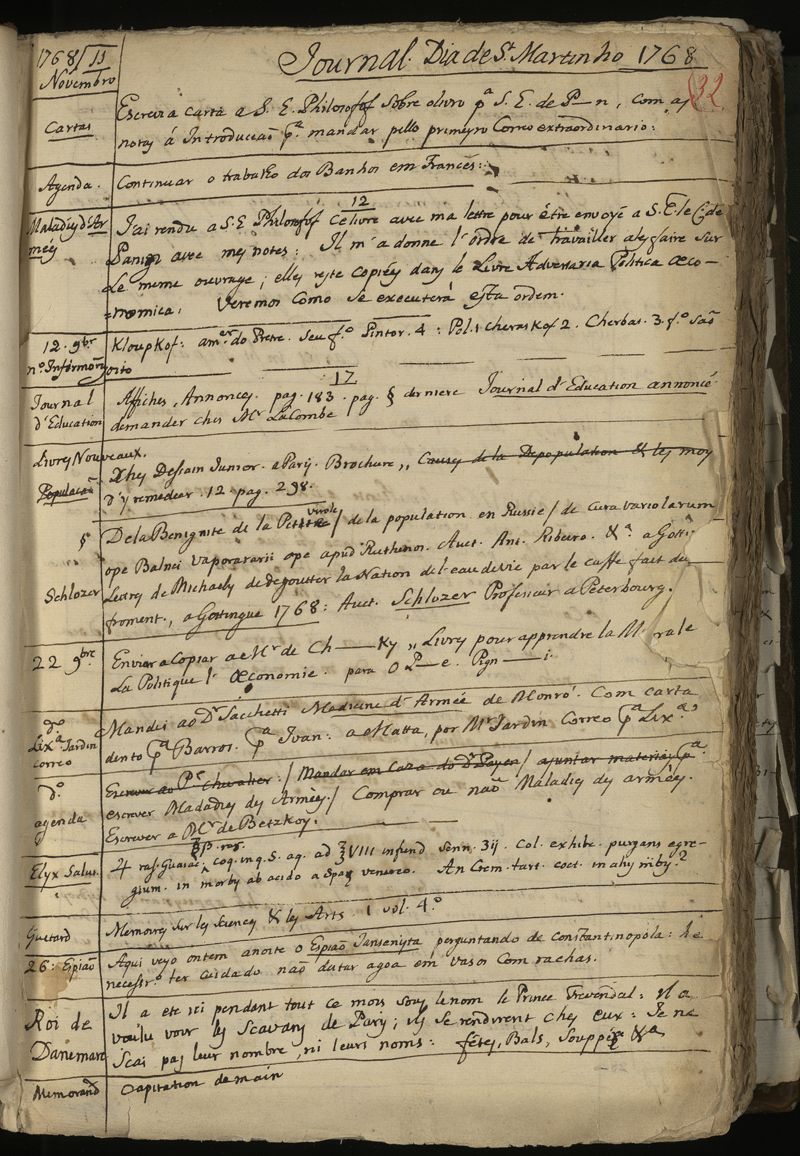 1768 / 11 Novembro
Journal. Dia de St. Martinho 1768
32
Cartas
Escrevi a carta a S. E. Philosofof sobre o livro pª S. E. de P—n, com as
notas á Introducçaõ pª mandar pello primeyro Correo extraordinario:
Agenda.
Continuar o trabalho dos Banhos em Francés:
12
Maladies d'Ar
mées
J'ai rendu a S. E Philosofof ce livre avec ma lettre pour être envoyé a S. E. le C. de
Panin avec mes notes: Il m'a donne l'ordre de travailler a les faire sur
Le meme ouvrage; elles reste copiées dans le Livre Adversaria Politica Œco-
=nomica. Veremos como se executerà esta ordem.
12. 9bre
Kloupkof: do Pretre. seu fº Pintor. 4: Pol. 1 Cheraskof 2. Cherbas. 3. fº
17
Journal
d'Education
Affiches, Annonces. pag. 183. pag. § derniere Journal d'Education annoncé
demander ches Mr LaCombe
Livres Nouveaux.
Populaçaõ
Ches Dessain Junior. a Paris. Brochure „ Causes de la Depopulation & les moy
d'y remedeer. 12. pag. 298.
5
De la Benignite de la Petite verole / de la population en Russie / de Cura variolarum
ope Balnei Vaporararii ope apud Ruthenos. Auct. Ant. Ribeiro. &ª a Götti
Schlozer
de Michaely de degoutter la Nation de l'eau de vie par le caffe fait du
froment., a Gottingue 1768: Auct. Schlozer Professeur a Petersbourg.
22 9bre.
Enviar a Copiar a e Mr de Ch—ky „ Livres pour apprendre la M rale
La Politique l'Œconomie. para O P—e. Pign—i.
dº
Lixª Jardin
correo
Mandei ao Dr Sacchetti Medicine d'Armée de Monrò. Com carta
dento pª Barros. pª Ivan: a Matta, por Mr Jardin Correo pª Lixª.
dº
agenda
Escrever ao Pe Chevalier: / Mandar em Caza do Dr Payen / ajuntar materias pª
escrever Maladies des Armées. / Comprar ou naõ Maladies des armées.
Escrever a Mr de Betzkoy.
Elyx Salut.
ras. Guaiac. coq. in q. S. aq. ad ℥VIII infund Senn. 3ij. Col. exhibe. purgans egre-
gium. in morbis ab acido a Spas venereo. An Crem. tart. coct. in
Guetard
Memoires sur les sciences & les Arts 1 vol. 4º
26: Espiaõ
Aqui veyo ontem a noite o Espiaõ Jansenista perguntando de Constantinopola: he
necessrº ter cuidado naõ datar agoa em vasos com rachas.
Roi de
Danemarc
Il a ete ici pendant tout ce mois sous le nom le Prince Trevendal: Il a
voulu voir les Scavans de Paris; ils se rendirent ches eux: Je ne
scai pas leur nombre, ni leurs noms: fêtes, Bals, Souppés &ª
Memorand
Capitation demain